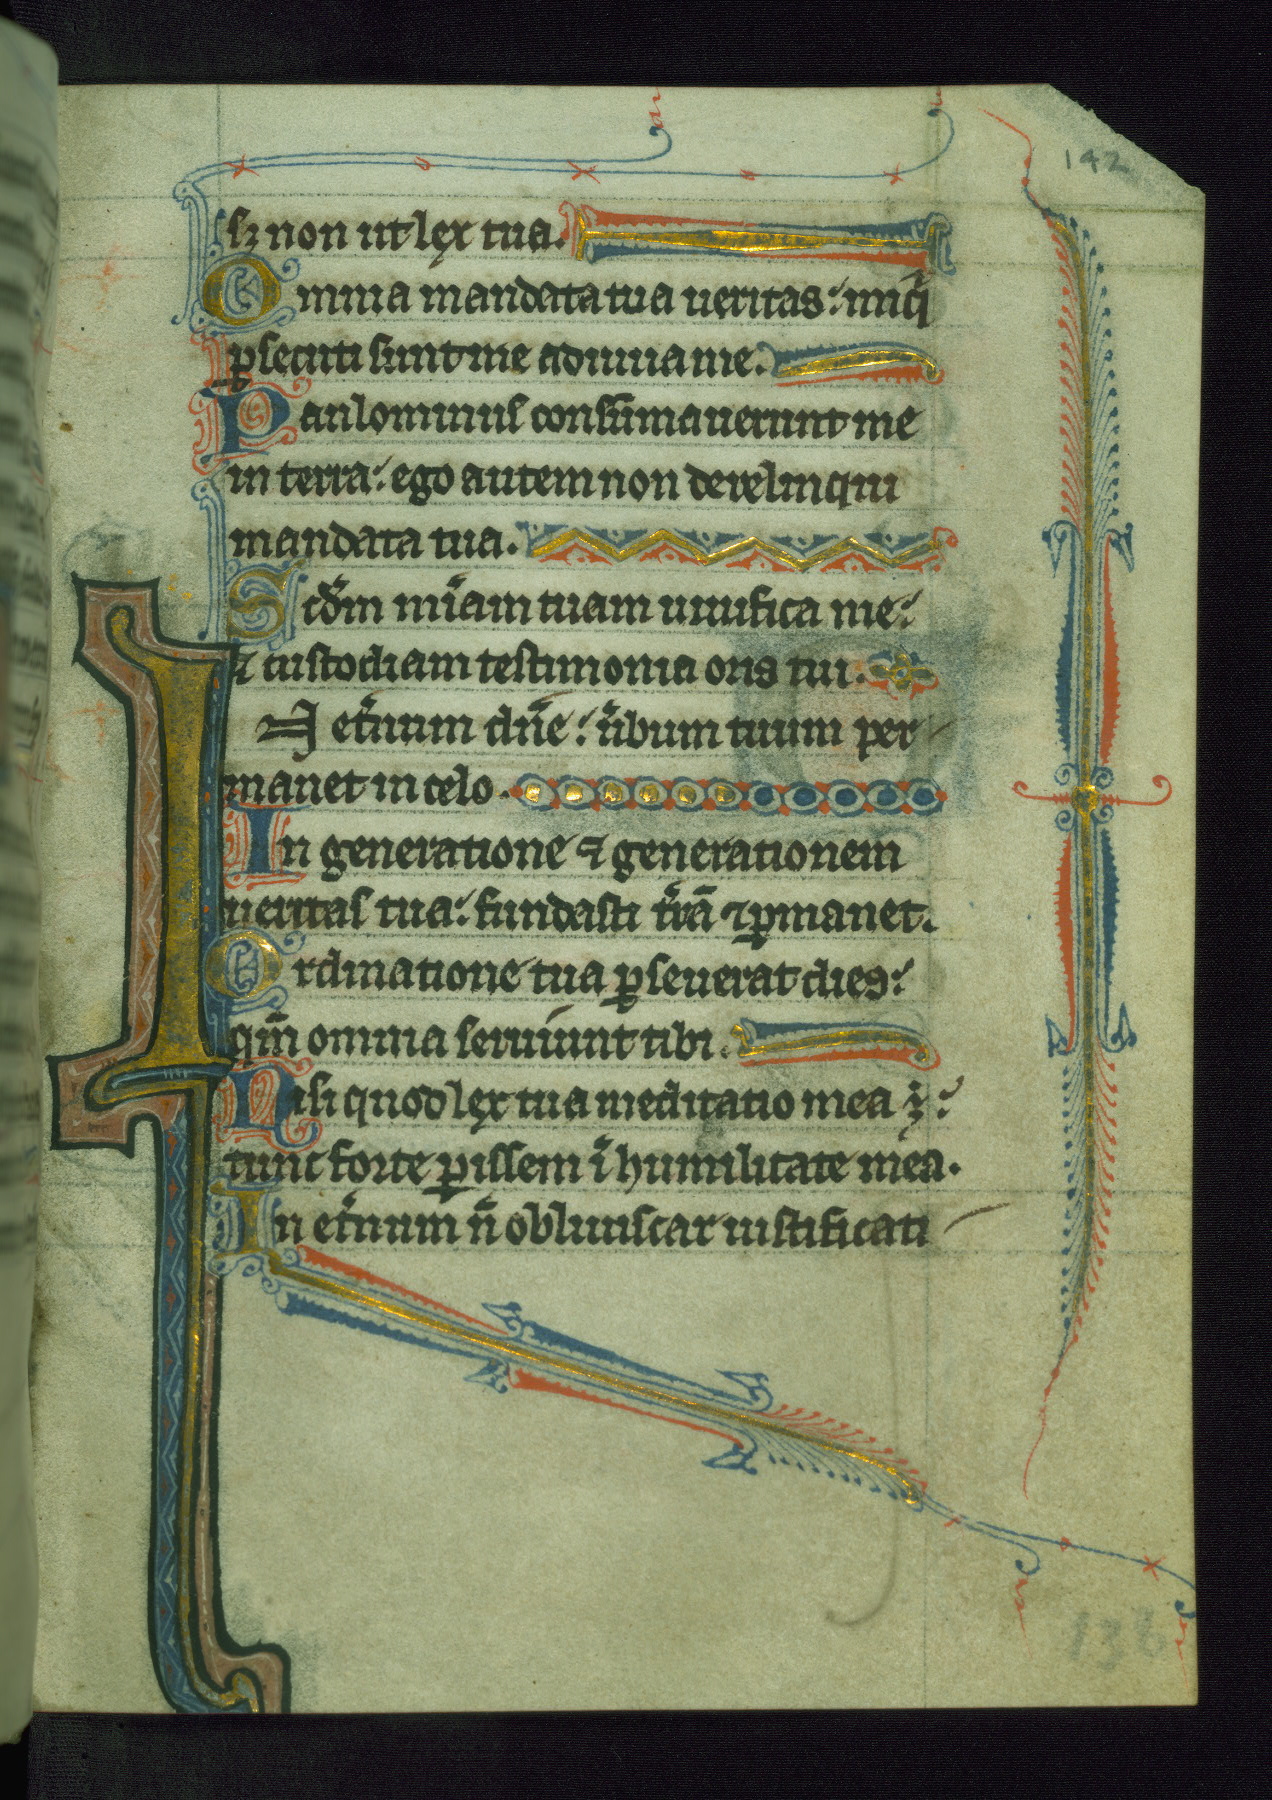 142
sꝫ non ut lex tua.
Omnia mandata tua ueritas: iniq̄
ꝑsecuti sunt me adiuua me.
Paulominus consūmauerunt me
in terra: ego autem non derelinqui
mandata tua.
Scd̄m mīam tuam uiuifica me:
& custodiam testimonia oris tui.
In et̄num dn̄e: ūbum tuum per
manet in celo.
In generatione ⁊ generationem
ueritas tua: fundasti t̄rā ⁊ ꝑmanet.
Ordinatione tua ꝑseuerat dies:
qm̄ omnia seruiunt tibi.
Nisi quod lex tua meditatio mea ÷:
tunc forte ꝑissem ī humilitate mea.
In et̄num n̄ obliuiscar iustificati
138